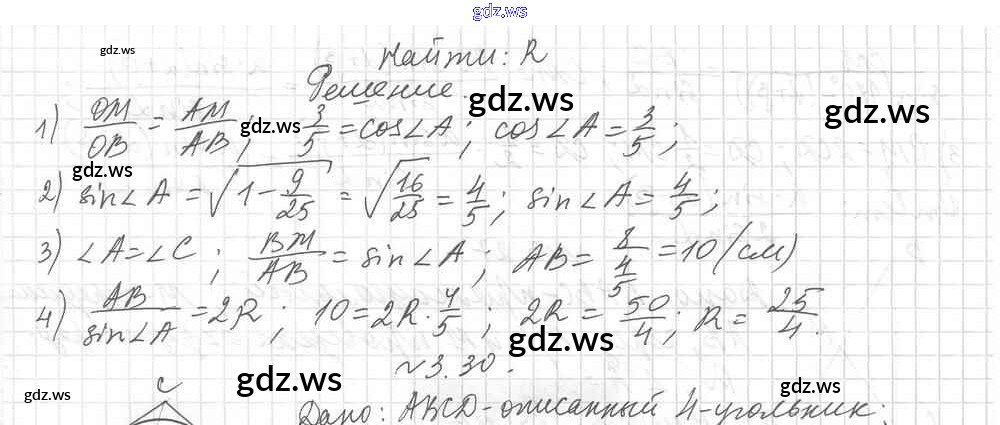 gdz.ws
gdz.ws
Найти: R
Решение.
gdz.ws
gdz.ws
1) OM/OB = AM/AB; gdz.ws 3/5 = cos∠A; cos∠A = 3/5;
gdz.ws
2) sin∠A = √(1 - 9/25) = √(16/25) = 4/5; sin∠A = 4/5;
3) ∠A = ∠C; BM/AB = sin∠A; AB = 8/(4/5) = 10 (см)
4) AB/sin∠A = 2R; 10 = 2R · 4/5; 2R = 50/4; R = 25/4.
gdz.ws
~3.30.
gdz.ws
gdz.ws
gdz.ws
C
Дано: ABCD - описанный 4-угольник;